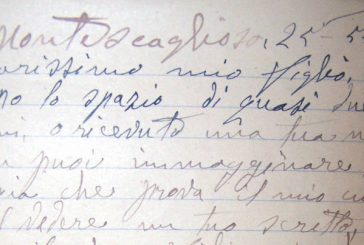 Montescaglioso, 25-5
arissimo mio figlio,
po lo spazio di quasi due
ni, o riceduto una tua
puoi immagginare
ia che prova il mio cu
l vedere un tuo scritto,